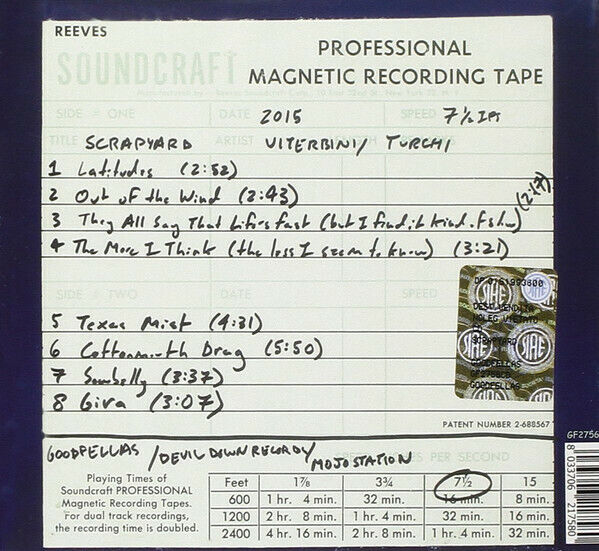 REEVES
SOUNDCRAFT
PROFESSIONAL
MAGNETIC RECORDING TAPE
SIDE ONE DATE 2015 SPEED 7½ IPS
TITLE SCRAPYARD ARTIST VITERBINI/ TURCHI
1 Latitudes (2:52)
2 Out of the Wind (2:43)
3 They All Say That Life's fast (but I find it kind of slow) (2:17)
4 The More I Think (the less I seem to know) (3:21)
SIDE TWO DATE SPEED
5 Texas Mist (4:31)
6 Cottonmouth Drag (5:50)
7 Sowbelly (3:37)
8 Gira (3:07)
SIAE
SCRAPYARD
GOODFELLAS
GOODFELLAS
PATENT NUMBER 2-688567
GOODFELLAS /DEVIL DOWN RECORDS/ MOJO STATION
PER SECOND
Playing Times of
Soundcraft PROFESSIONAL
Magnetic Recording Tapes.
For dual track recordings,
the recording time is doubled.
Feet 1⅞ 3¾ 7½ 15
600 1 hr. 4 min. 32 min. 16 min. 8 min.
1200 2 hr. 8 min. 1 hr. 4 min. 32 min. 16 min.
2400 4 hr. 16 min. 2 hr. 8 min. 1 hr. 4 min. 32 min.
GF2756
8 033706 217580